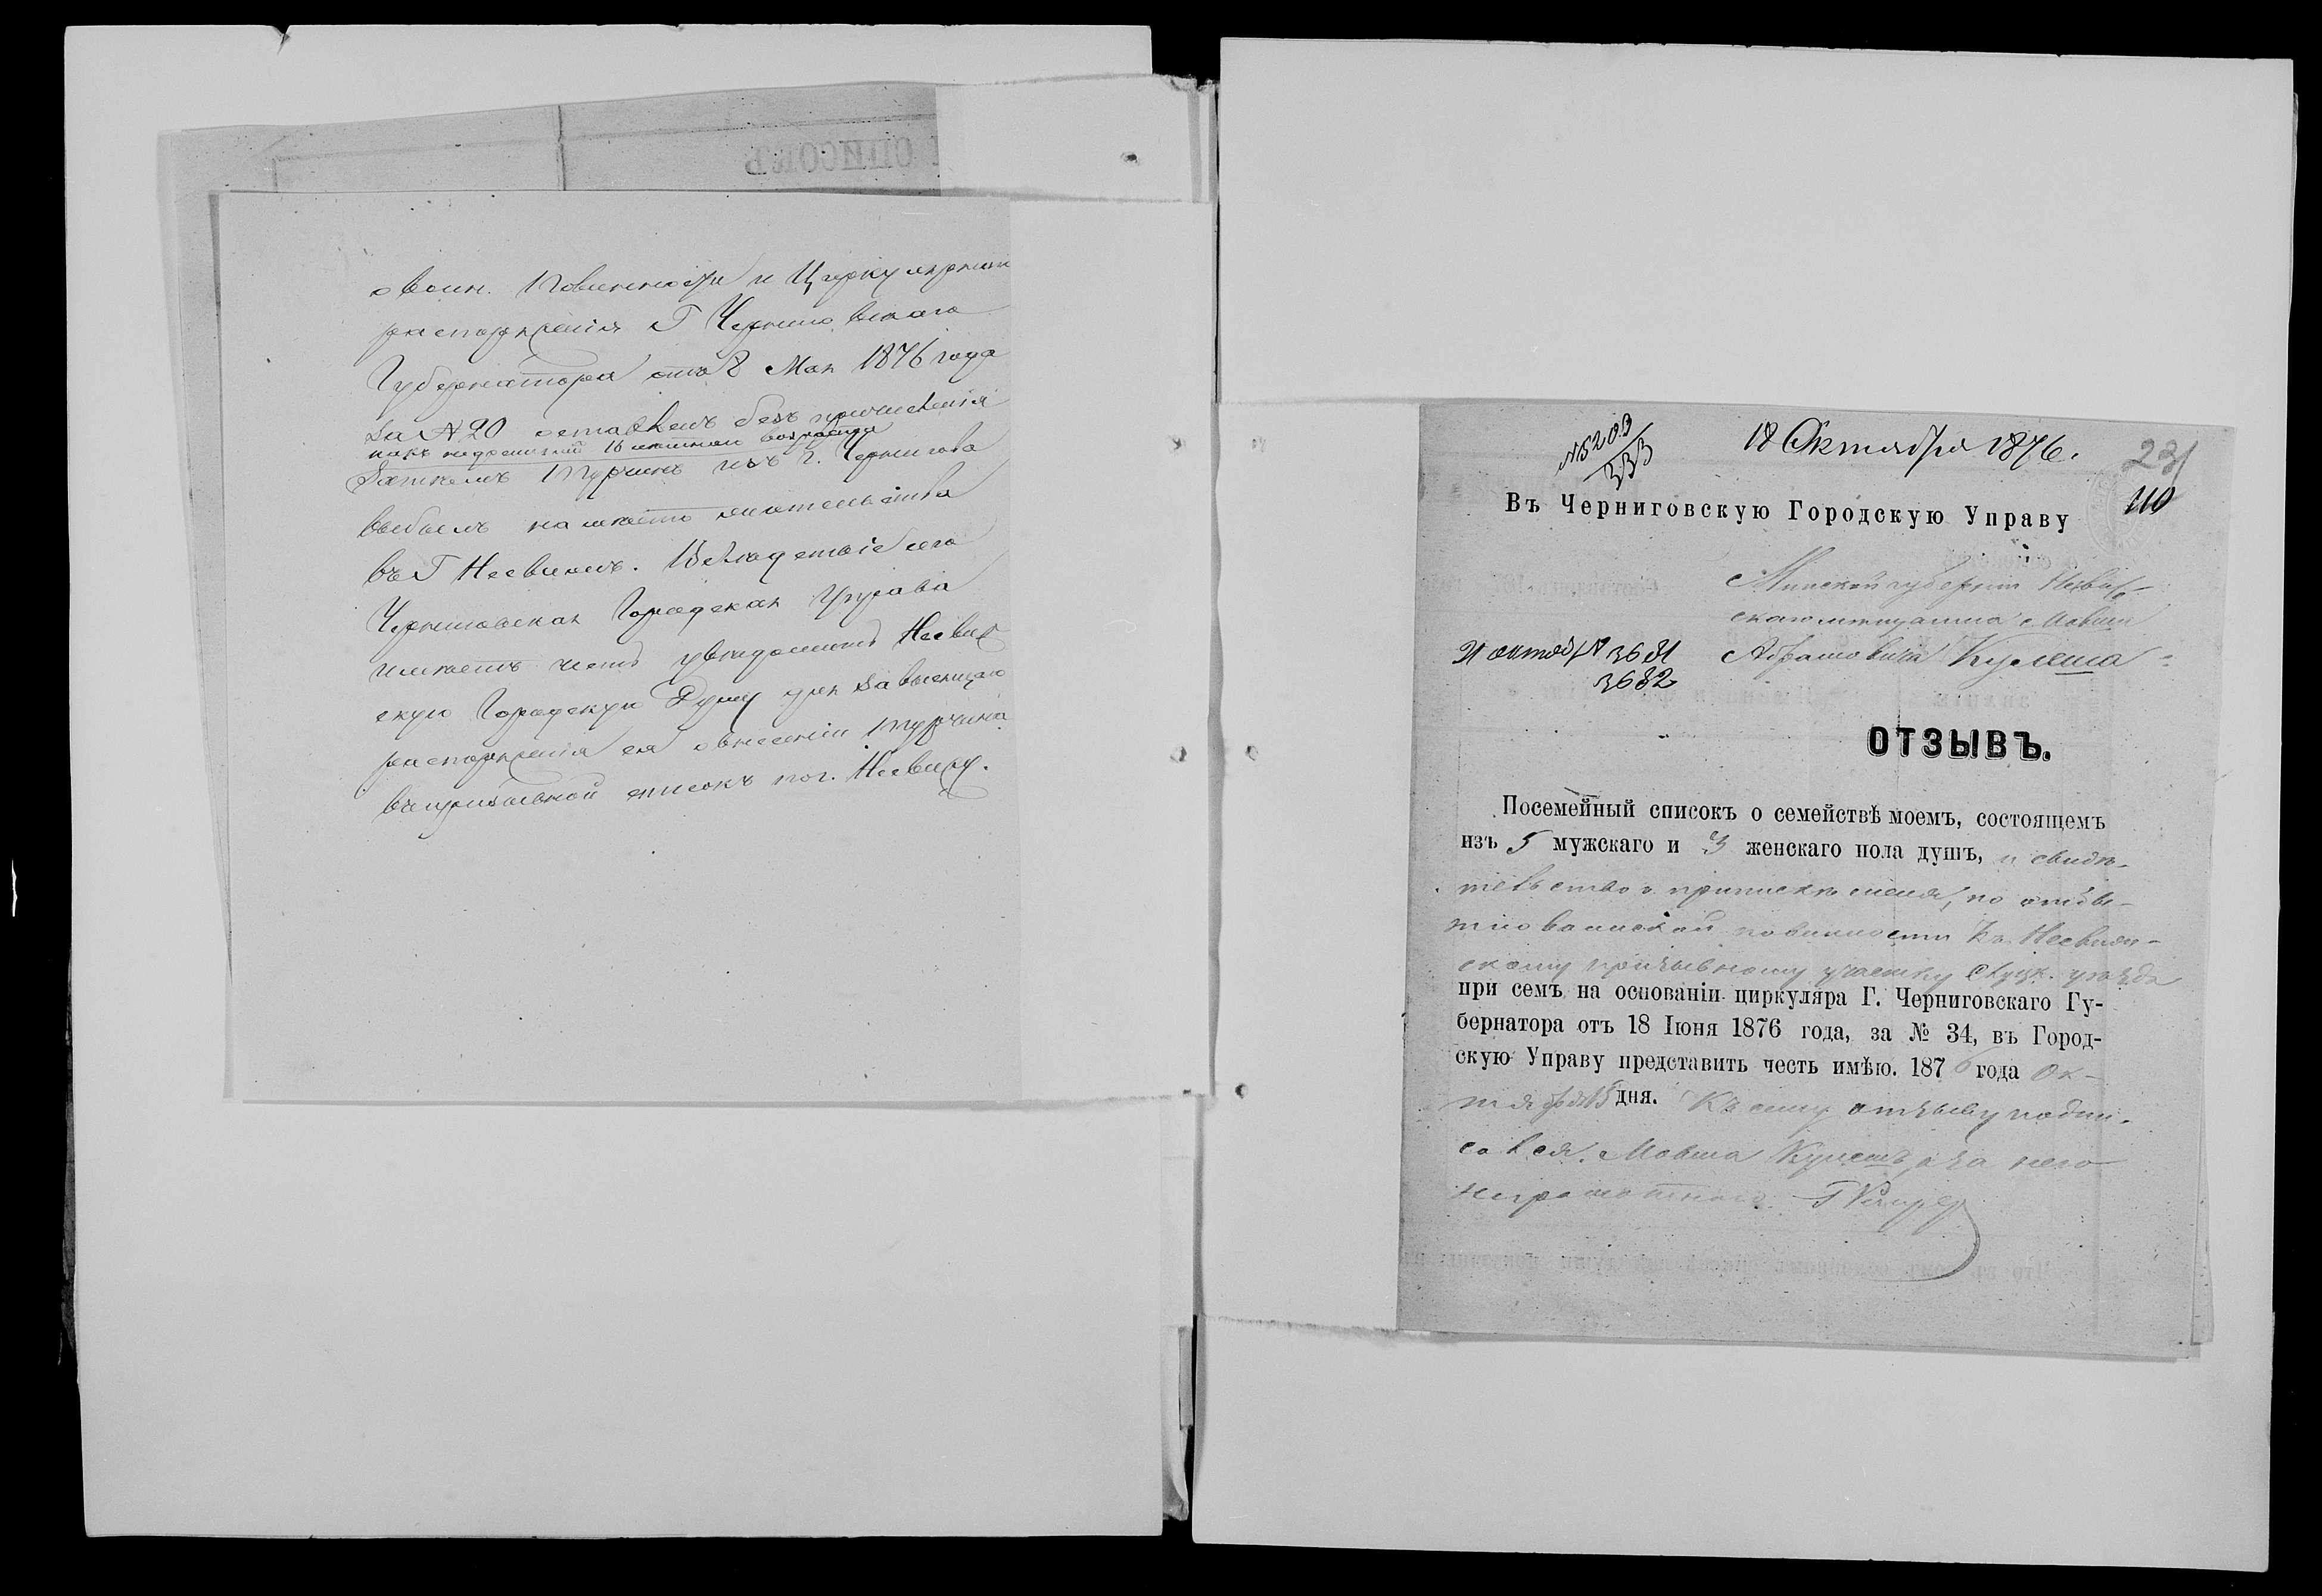 о воин. повинности и Циркулярнаго
распоряженія Г Черниговскаго
Губернатора отъ 8 Мая 1876 года
за № 20 оставленъ безъ причисленія
какъ недостигшій 16 лѣтняго возраста
Затѣмъ Турчинъ изъ г. Чернигова
выбылъ на мѣсто жительства
въ Г Несвижъ. Вслѣдствіе сего
Черниговская Городская Управа
имѣетъ честь увѣдомить Несвиж
скую Городскую Думу для зависящаго
распоряженія ея о внесеніи Турчина
въ призывной списокъ по г. Несвижу.
СПИСОКЪ
№5203
233
18 Октября 1876.
231
110
Въ Черниговскую Городскую Управу
Минской губерніи Несвиж-
скаго мѣщанина Мовши
21 октяб № 3681
3682
Абрамовича Кулеша
ОТЗЫВЪ.
Посемейный списокъ о семействѣ моемъ, состоящемъ
изъ 5 мужскаго и 3 женскаго пола душъ, и свидѣ-
тельство о припискѣ меня, по отбы-
тію воинской повинности къ Несвиж-
скому призывному участку Слуцк. уѣзда
при семъ на основаніи циркуляра Г. Черниговскаго Гу-
бернатора отъ 18 Іюня 1876 года, за № 34, въ Город-
скую Управу представить честь имѣю. 1876 года Ок-
тября 15 дня. Къ сему отзыву подпи-
сался. Мовша Кулешъ, а за него
неграмотнаго